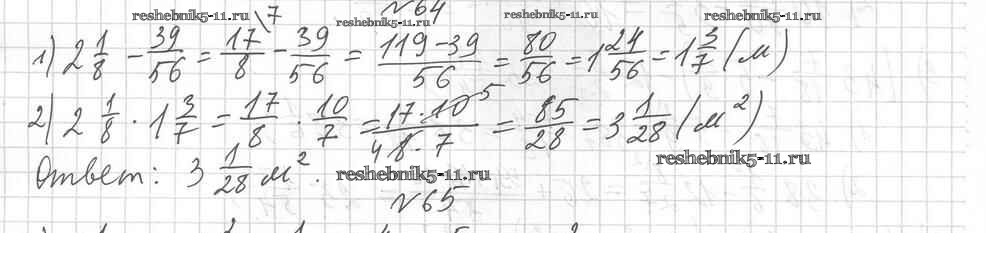 №64
reshebnik5-11.ru reshebnik5-11.ru reshebnik5-11.ru reshebnik5-11.ru
1) 2 1/8 - 39/56 = 17/8 \7 - 39/56 = 119-39/56 = 80/56 = 1 24/56 = 1 3/7 (м)
2) 2 1/8 · 1 3/7 = 17/8 · 10/7 = 17·10 5/4 8·7 = 85/28 = 3 1/28 (м²)
reshebnik5-11.ru
Ответ: 3 1/28 м².
reshebnik5-11.ru
№65